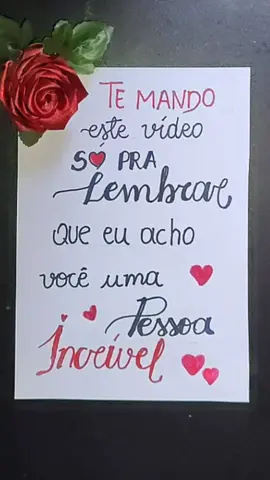 TE MANDO
este vídeo
SÓ PRA
Lembrar
QUE EU ACHO
você uma
Pessoa
Incrível